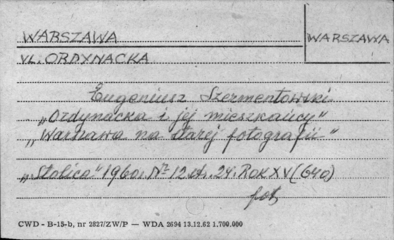 WARSZAWA
WARSZAWA
UL. ORDYNACKA
Eugeniusz Szermentowski
„Ordynacka i jej mieszkańcy"
„Warszawa na starej fotografii"
„Stolica" 1960r. Nr 12 st. 24. ROK XV (640)
fot.
CWD - B-15-b, nr 2827/ZW/P — WDA 2694 13.12.62 1.700.000